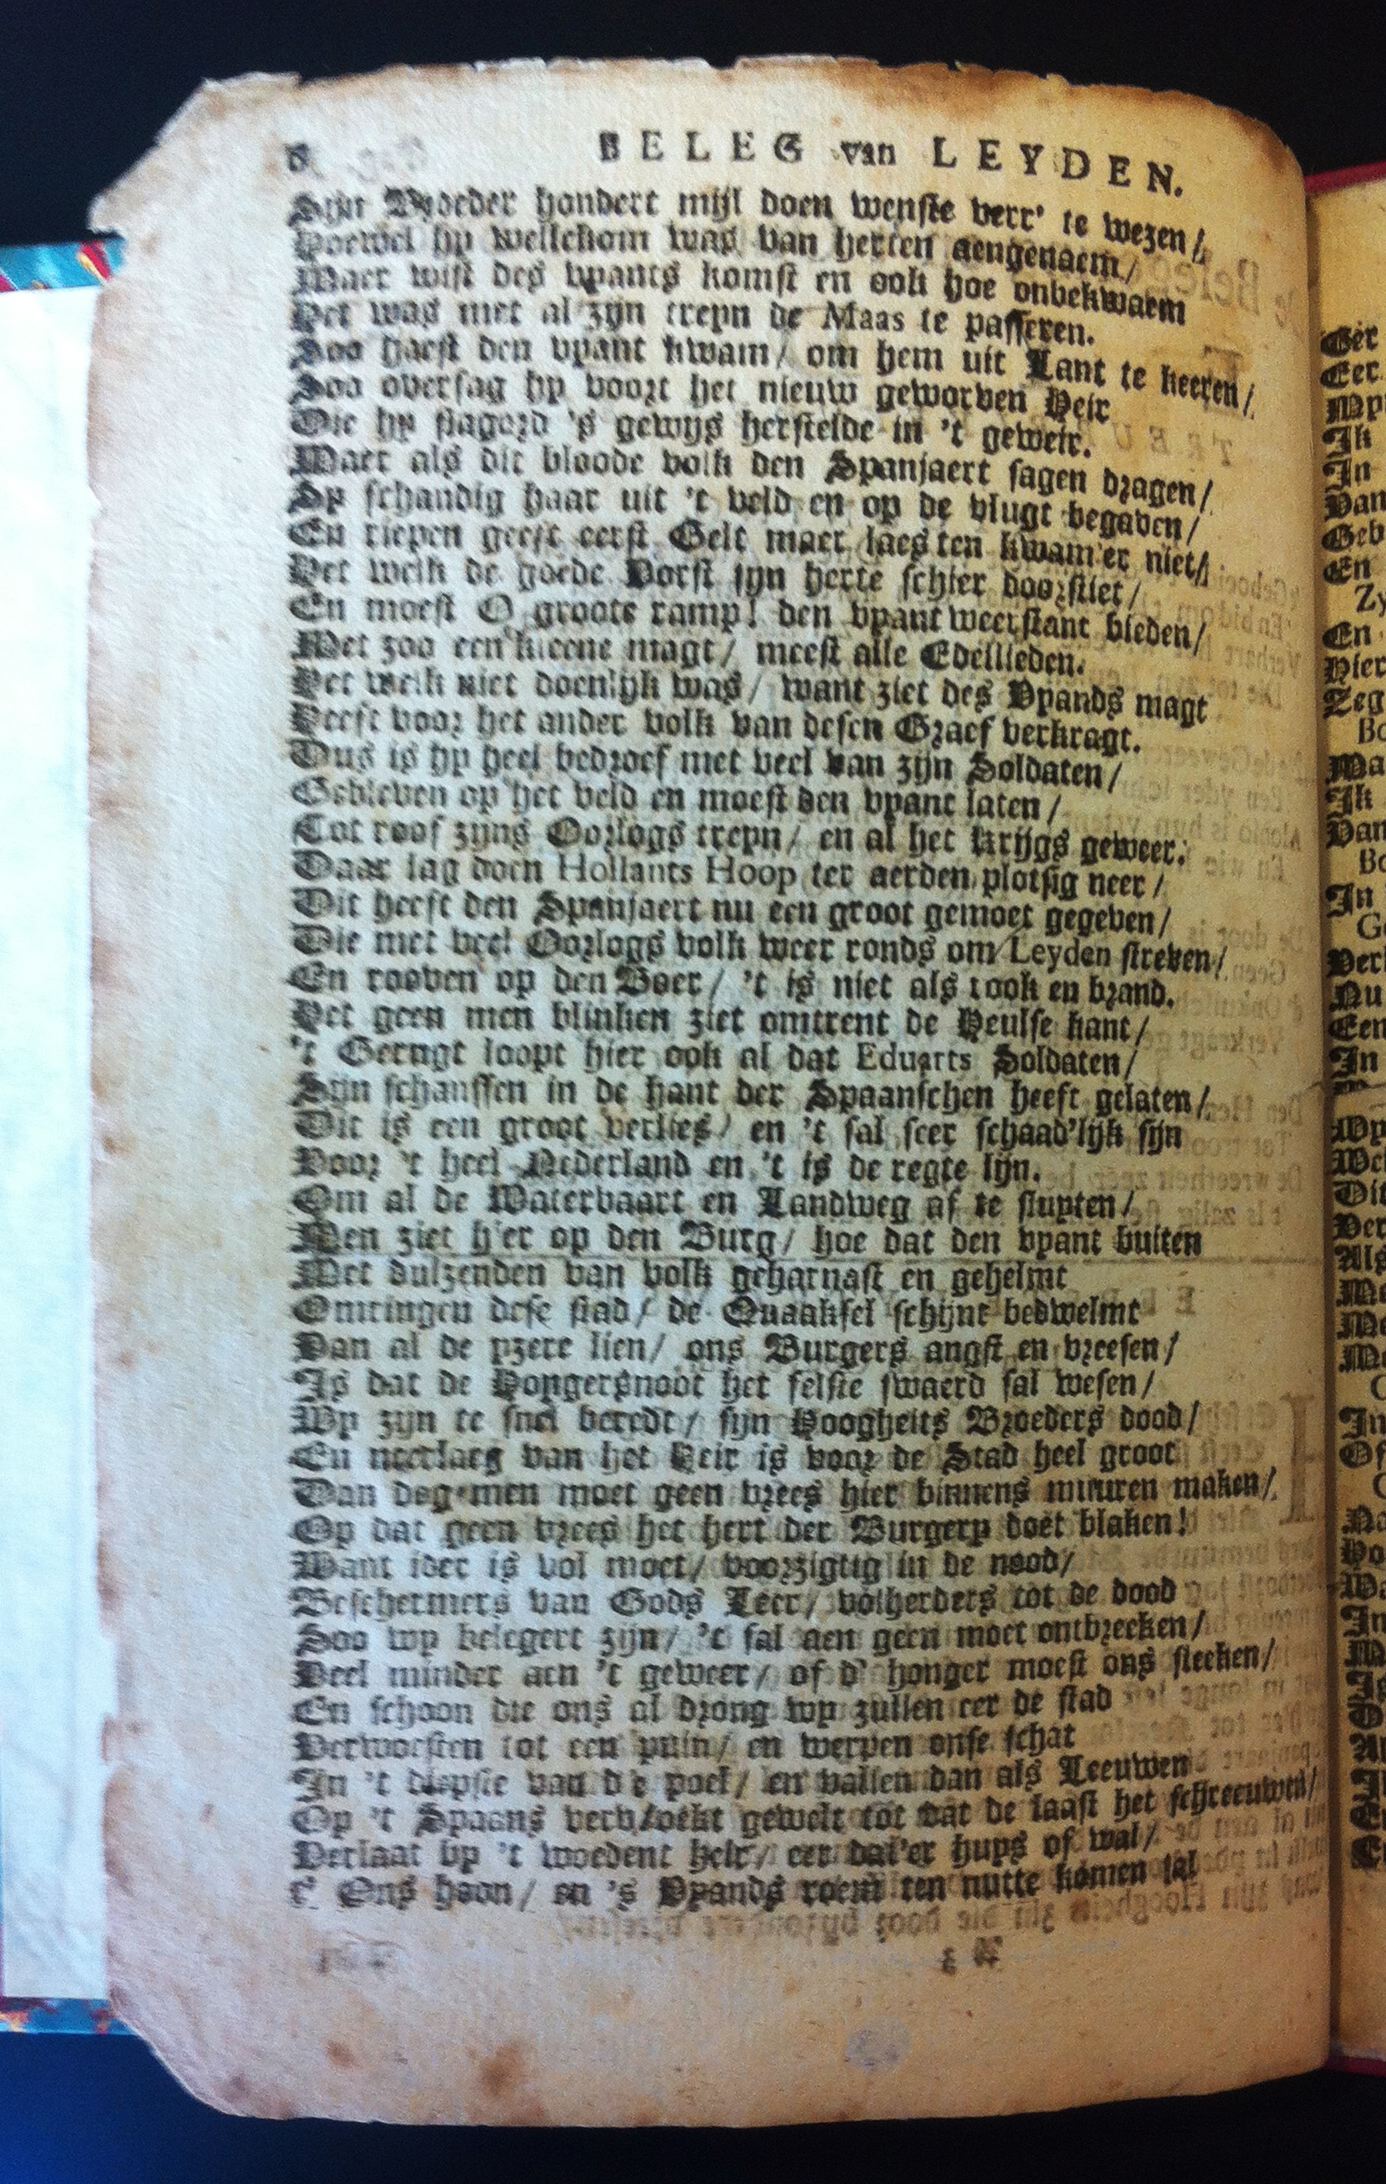 6 BELEG van LEYDEN.
Sijn Broeder hondert mijl doen wenste verr' te wezen /
Hoewel hy wellekom was van herten aengenaem /
Maer wist des vyants komst en ook hoe onbekwaem
Het was met al zijn treyn de Maas te passeren.
Soo haest den vyant kwam / om hem uit Lant te keeren /
Soo oversag hy voort het nieuw geworven Heir
Die hy slagord 's gewijs herstelde in 't geweir.
Maer als dit bloode volk den Spanjaert sagen dragen /
Sy schandig haar uit 't veld en op de vlugt begaven /
En riepen geeft eerst Gelt maer laes ten kwam'er niet /
Het welk de goede Vorst sijn herte schier doorstiet /
En moest O groote ramp! den vyant weerstant bieden /
Met zoo een kleene magt / meest alle Edellieden.
Het welk niet doenlijk was / want ziet des Vyands magt
Heeft voor het ander volk van desen Graef verkragt.
Dus is hy heel bedroef met veel van zijn Soldaten /
Gebleven op het veld en moest den vyant laten /
Tot roof zijns Oorlogs treyn / en al het krijgs geweer.
Daar lag doen Hollants Hoop ter aerden plotsig neer /
Dit heeft den Spanjaert nu een groot gemoet gegeven /
Die met veel Oorlogs volk weer ronds om Leyden streven /
En rooven op den Boer / 't is niet als rook en brand.
Het geen men blinken ziet omtrent de Heulse kant /
't Gerugt loopt hier ook al dat Eduarts Soldaten /
Sijn schanssen in de hant der Spaanschen heeft gelaten /
Dit is een groot verlies / en 't sal seer schaad'lijk sijn
Voor 't heel Nederland en 't is de regte lijn.
Om al de Watervaart en Landweg af te sluyten /
Men ziet hier op den Burg / hoe dat den vyant buiten
Met duizenden van volk geharnast en gehelmt
Omringen dese stad / de Quaaksel schijnt bedwelmt
Van al de yzere lien / ons Burgers angst en vreesen /
Is dat de Hongersnoot het felste swaerd sal wesen /
Wy zijn te snel beredt / sijn Hoogheits Broeders dood /
En neerlaeg van het Heir is voor de Stad heel groot
Dan dog men moet geen vrees hier binnens muuren maken /
Op dat geen vrees het hert der Burgery doet blaken!
Want ider is vol moet / voorzigtig in de nood /
Beschermers van Gods Leer / volherders tot de dood
Soo wy belegert zijn / 't sal aen geen moet ontbreeken /
Veel minder aen 't geweer / of d' honger moest ons steeken /
En schoon die ons al drong wy zullen eer de stad
Verwoesten tot een puin / en werpen onse schat
In 't diepste van de poel / en vallen dan als Leeuwen
Op 't Spaans vervloekt gewelt tot dat de laast het schreeuwen /
Verlaat by 't woedent heir / eer dat'er huys of wal /
t' Ons hoon / en 's Vyands roem ten nutte komen sal